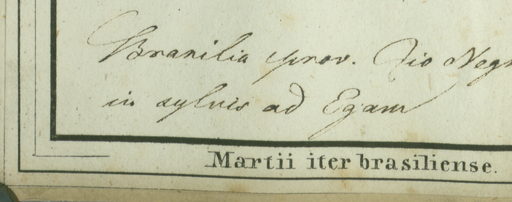 Brasilia prov. Rio Negr
in sylvis ad Egam
Martii iter brasiliense.